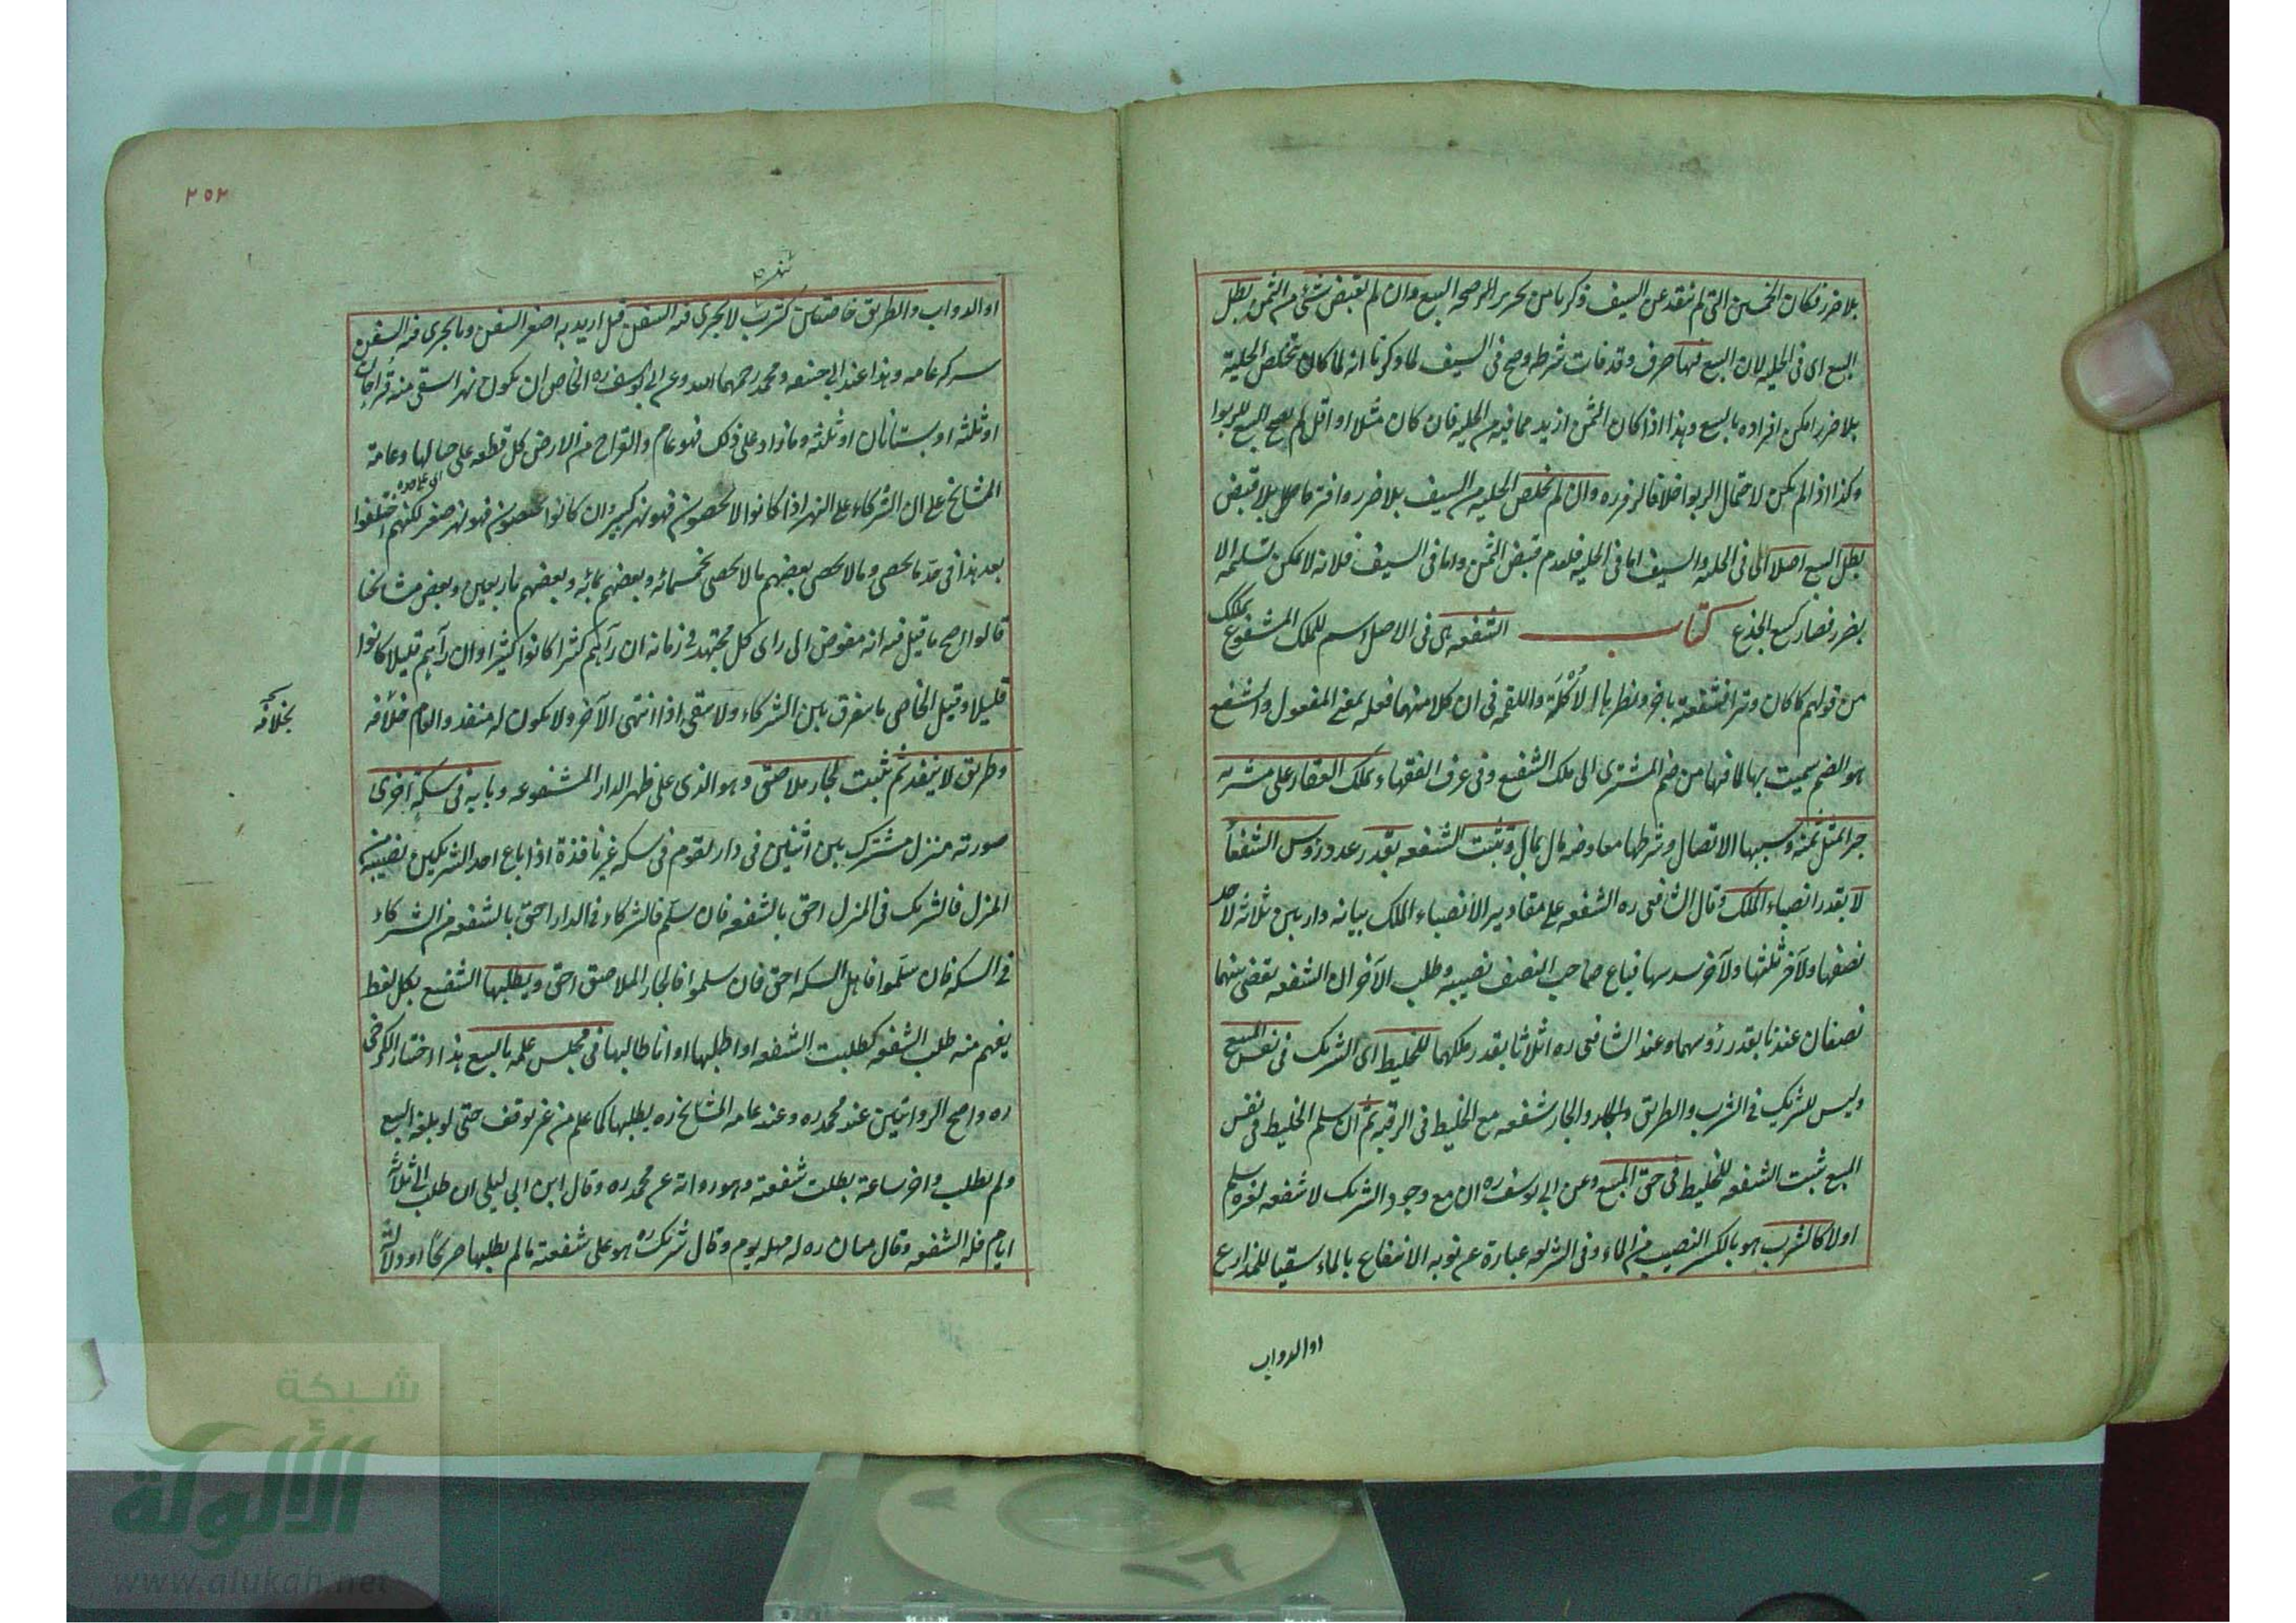 بلا ضرر فكان الخمسين التى لم تنقد عن السيف ذكرنا من تحرير المرصحه البيع وان لم يقبض شئ من الثمن بطل
البيع اى فى الحلية لان البيع فيها صرف وقد فات شرطه وصح فى السيف لما ذكرنا انه لما كان تخلص الحلية
بلا ضرر امكن افراده بالبيع وهذا اذا كان الثمن ازيد مما فيه من الحلية فان كان مثلا او اقل لم يصح البيع للربوا
وكذا اذا لم يكن لاحتمال الربوا خلافا لزفر ره وان لم تخلص الحلية من السيف بلا ضرر وافترقا بلا قبض
بطل البيع اصلا اى فى الحلية والسيف اما فى الحلية فلعدم قبض الثمن واما فى السيف فلانه لا يمكن تسليمه الا
بضرر فصار كبيع الجذع كتاب الشفعه هى فى الاصل اسم للملك المشفوع بملك
من قولهم كان وترا فشفعته باخر ونظيرها الاُكْلَة واللقمه فى ان كلا منهما فعله بمعنى المفعول والشفع
هو الضم سميت بها لما فيها من ضم المشترى الى ملك الشفيع وفى عرف الفقهاء تملك العقار على مشتريه
جبرا بمثل ثمنه وسببها الاتصال وشرطها معاوضه مال بمال وتثبت الشفعه بقدر عدد رؤس الشفعا
لا بقدر انصباء الملك وقال الشافعى ره الشفعه على مقادير الانصباء الملك بيانه دار بين ثلاثه لاحد
نصفها ولآخر ثلثها ولآخر سدسها فباع صاحب النصف نصيبه وطلب الآخران الشفعه يقضى بينهما
نصفان عندنا بقدر رؤسهما وعند الشافعى ره اثلاثا بقدر ملكهما للخليط اى الشريك فى نفس المبيع
وليس للشريك فى الشرب والطريق والجار شفعه مع الخليط فى الرقبه ثم ان سلم الخليط فى نفس
المبيع ثبت الشفعه للخليط فى حق المبيع وعن ابى يوسف ره ان مع وجود الشريك لا شفعه لغيره سلم
اولا كالشرب هو بالكسر النصيب من الماء وفى الشريعه عبارة عن نوبه الانتفاع بالماء سقيا للمزارع
او الدواب
٢٥٢
او الدواب والطريق خاصتين كشرب لا يجرى فيه السفن قيل اريد به اصغر السفن وما يجرى فيه السفن
شركه عامه وهذا عند ابى حنيفه ومحمد رحمهما الله وعن ابى يوسف ره الخاص ان يكون نهرا يسقى منه قراحان
او ثلثه او بستانان او ثلثه وما زاد على ذلك فهو عام والقراح من الارض كل قطعه على حيالها وعامة
المشايخ على ان الشركاء على النهر اذا كانوا لا يحصون فهو نهر كبير وان كانوا يحصون فهو نهر صغير لكنهم اختلفوا
بعد هذا فى حدّ ما يحصى وما لا يحصى بعضهم ما لا يحصى بخمسمائه وبعضهم بمائه وبعضهم باربعين وبعض مشايخنا
قالوا اصح ما قيل فيه انه مفوض الى راى كل مجتهد فى زمانه ان رآهم كثيرا كانوا كثيرا وان رآهم قليلا كانوا
قليلا وقيل الخاص ما يتفرق بين الشركاء ولا يبقى اذا انتهى الآخر ولا يكون له منفذ والعام خلافه
بخلافه
وطريق لا ينفذ ثم تثبت لجار ملاصق وهو الذى على ظهر الدار المشفوعه وبابه فى سكة اخرى
صورته منزل مشترك بين اثنين فى دار لقوم فى سكه غير نافذة اذا باع احد الشريكين نصيبه من
المنزل فالشريك فى المنزل احق بالشفعه فان سلّم فالشركاء فى الدار احق بالشفعه من الشركاء
فى السكه فان سلّموا فاهل السكه احق فان سلموا فالجار الملاصق احق ويطلبها الشفيع بكل لفظ
يفهم منه طلب الشفعه كطلبت الشفعه او اطلبها او انا طالبها فى مجلس علمه بالبيع هذا اختيار الكرخى
ره واصح الروايتين عند محمد ره وعند عامه المشايخ ره يطلبها كما علم من غير توقف حتى لو بلغه البيع
ولم يطلب واخر ساعة بطلت شفعته وهو رواية عن محمد ره وقال ابن ابى ليلى ان طلب الى ثلاثة
ايام فله الشفعه وقال سفيان ره له مهله يوم وقال شريك ره هو على شفعته ما لم يبطلها صريحا او دلالة
شبكة
الألوكة
www.alukah.net